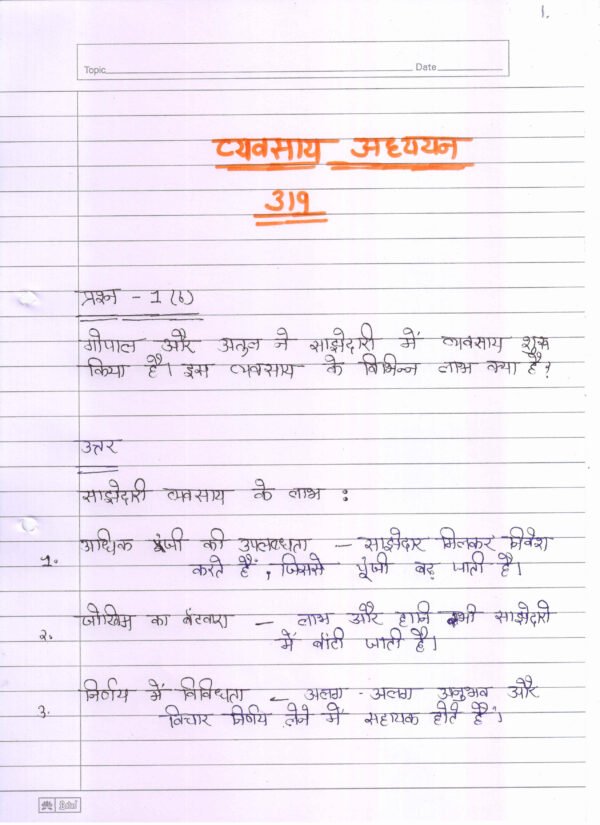 1.
Topic Date
व्यवसाय अध्ययन
319
प्रश्न - 1(b)
गोपाल और अतुल ने साझेदारी में व्यवसाय शुरू
किया है। इस व्यवसाय के विभिन्न लाभ क्या है?
उत्तर
साझेदारी व्यवसाय के लाभ :
1. अधिक पूंजी की उपलब्धता – साझेदार मिलकर निवेश
करते हैं, जिससे पूंजी बढ़ जाती है।
2. जोखिम का बंटवारा – लाभ और हानि सभी साझेदारो
में बांटी जाती है।
3. निर्णय में विविधता – अलग-अलग अनुभव और
विचार निर्णय लेने में सहायक होते हैं।